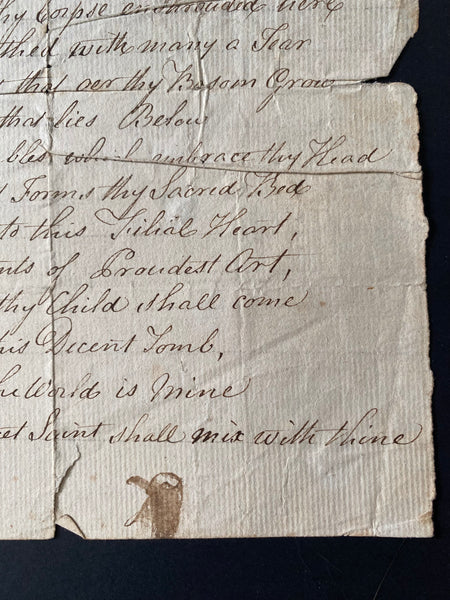 hy Corpse enshrouded here
thed with many a Tear
that oer thy Bosom Grow
that lies Below
bles which embrace thy Head
Forms thy Sacred Bed
to this Filial Heart,
nts of Proudest Art,
thy Child shall come
his Decent Tomb,
he World is mine
et Saint shall mix with thine